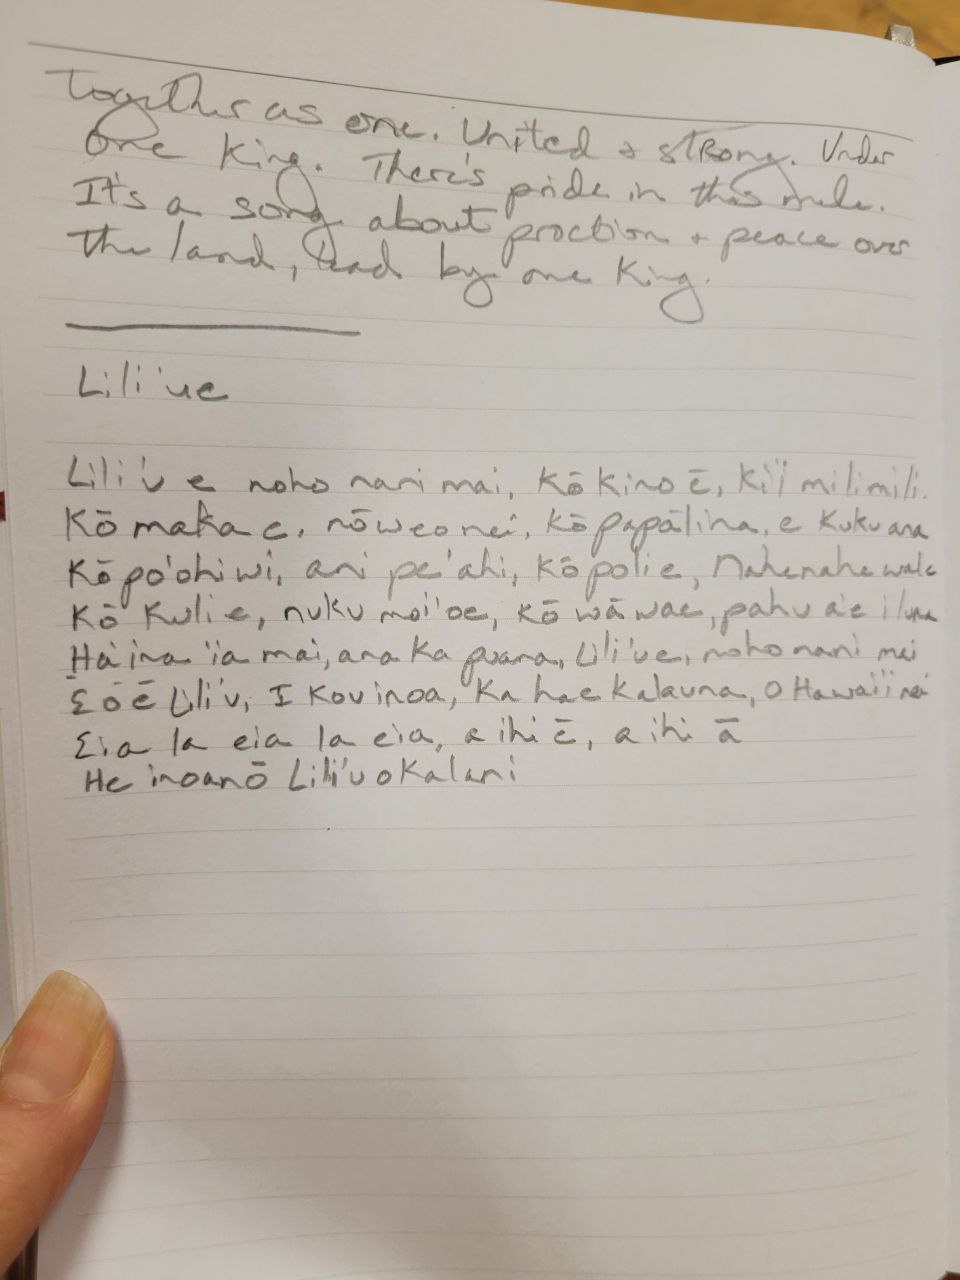 Together as one. United + strong. Under
one King. There's pride in this mele.
It's a song about proction + peace over
the land, lead by one King.
Lili'ue
Lili'u e noho nani mai, Kō kino ē, ki'i milimili.
Kō maka e, nōweo nei, kō papālina, e Kukuana
Kō po'ohiwi, ani pe'ahi, kō poli e, Nahenahe wale
Kō Kuli e, nuku moi'oe, kō wāwae, pahu a'e i luna
Ha'ina 'ia mai, ana ka puana, Lili'ue, noho nani mai
E ō ē Lili'u, I Kou inoa, Ka hae kalauna, O Hawai'i nei
Eia la eia la eia, a ihi ē, a ihi ā
He inoa nō Lili'uokalani